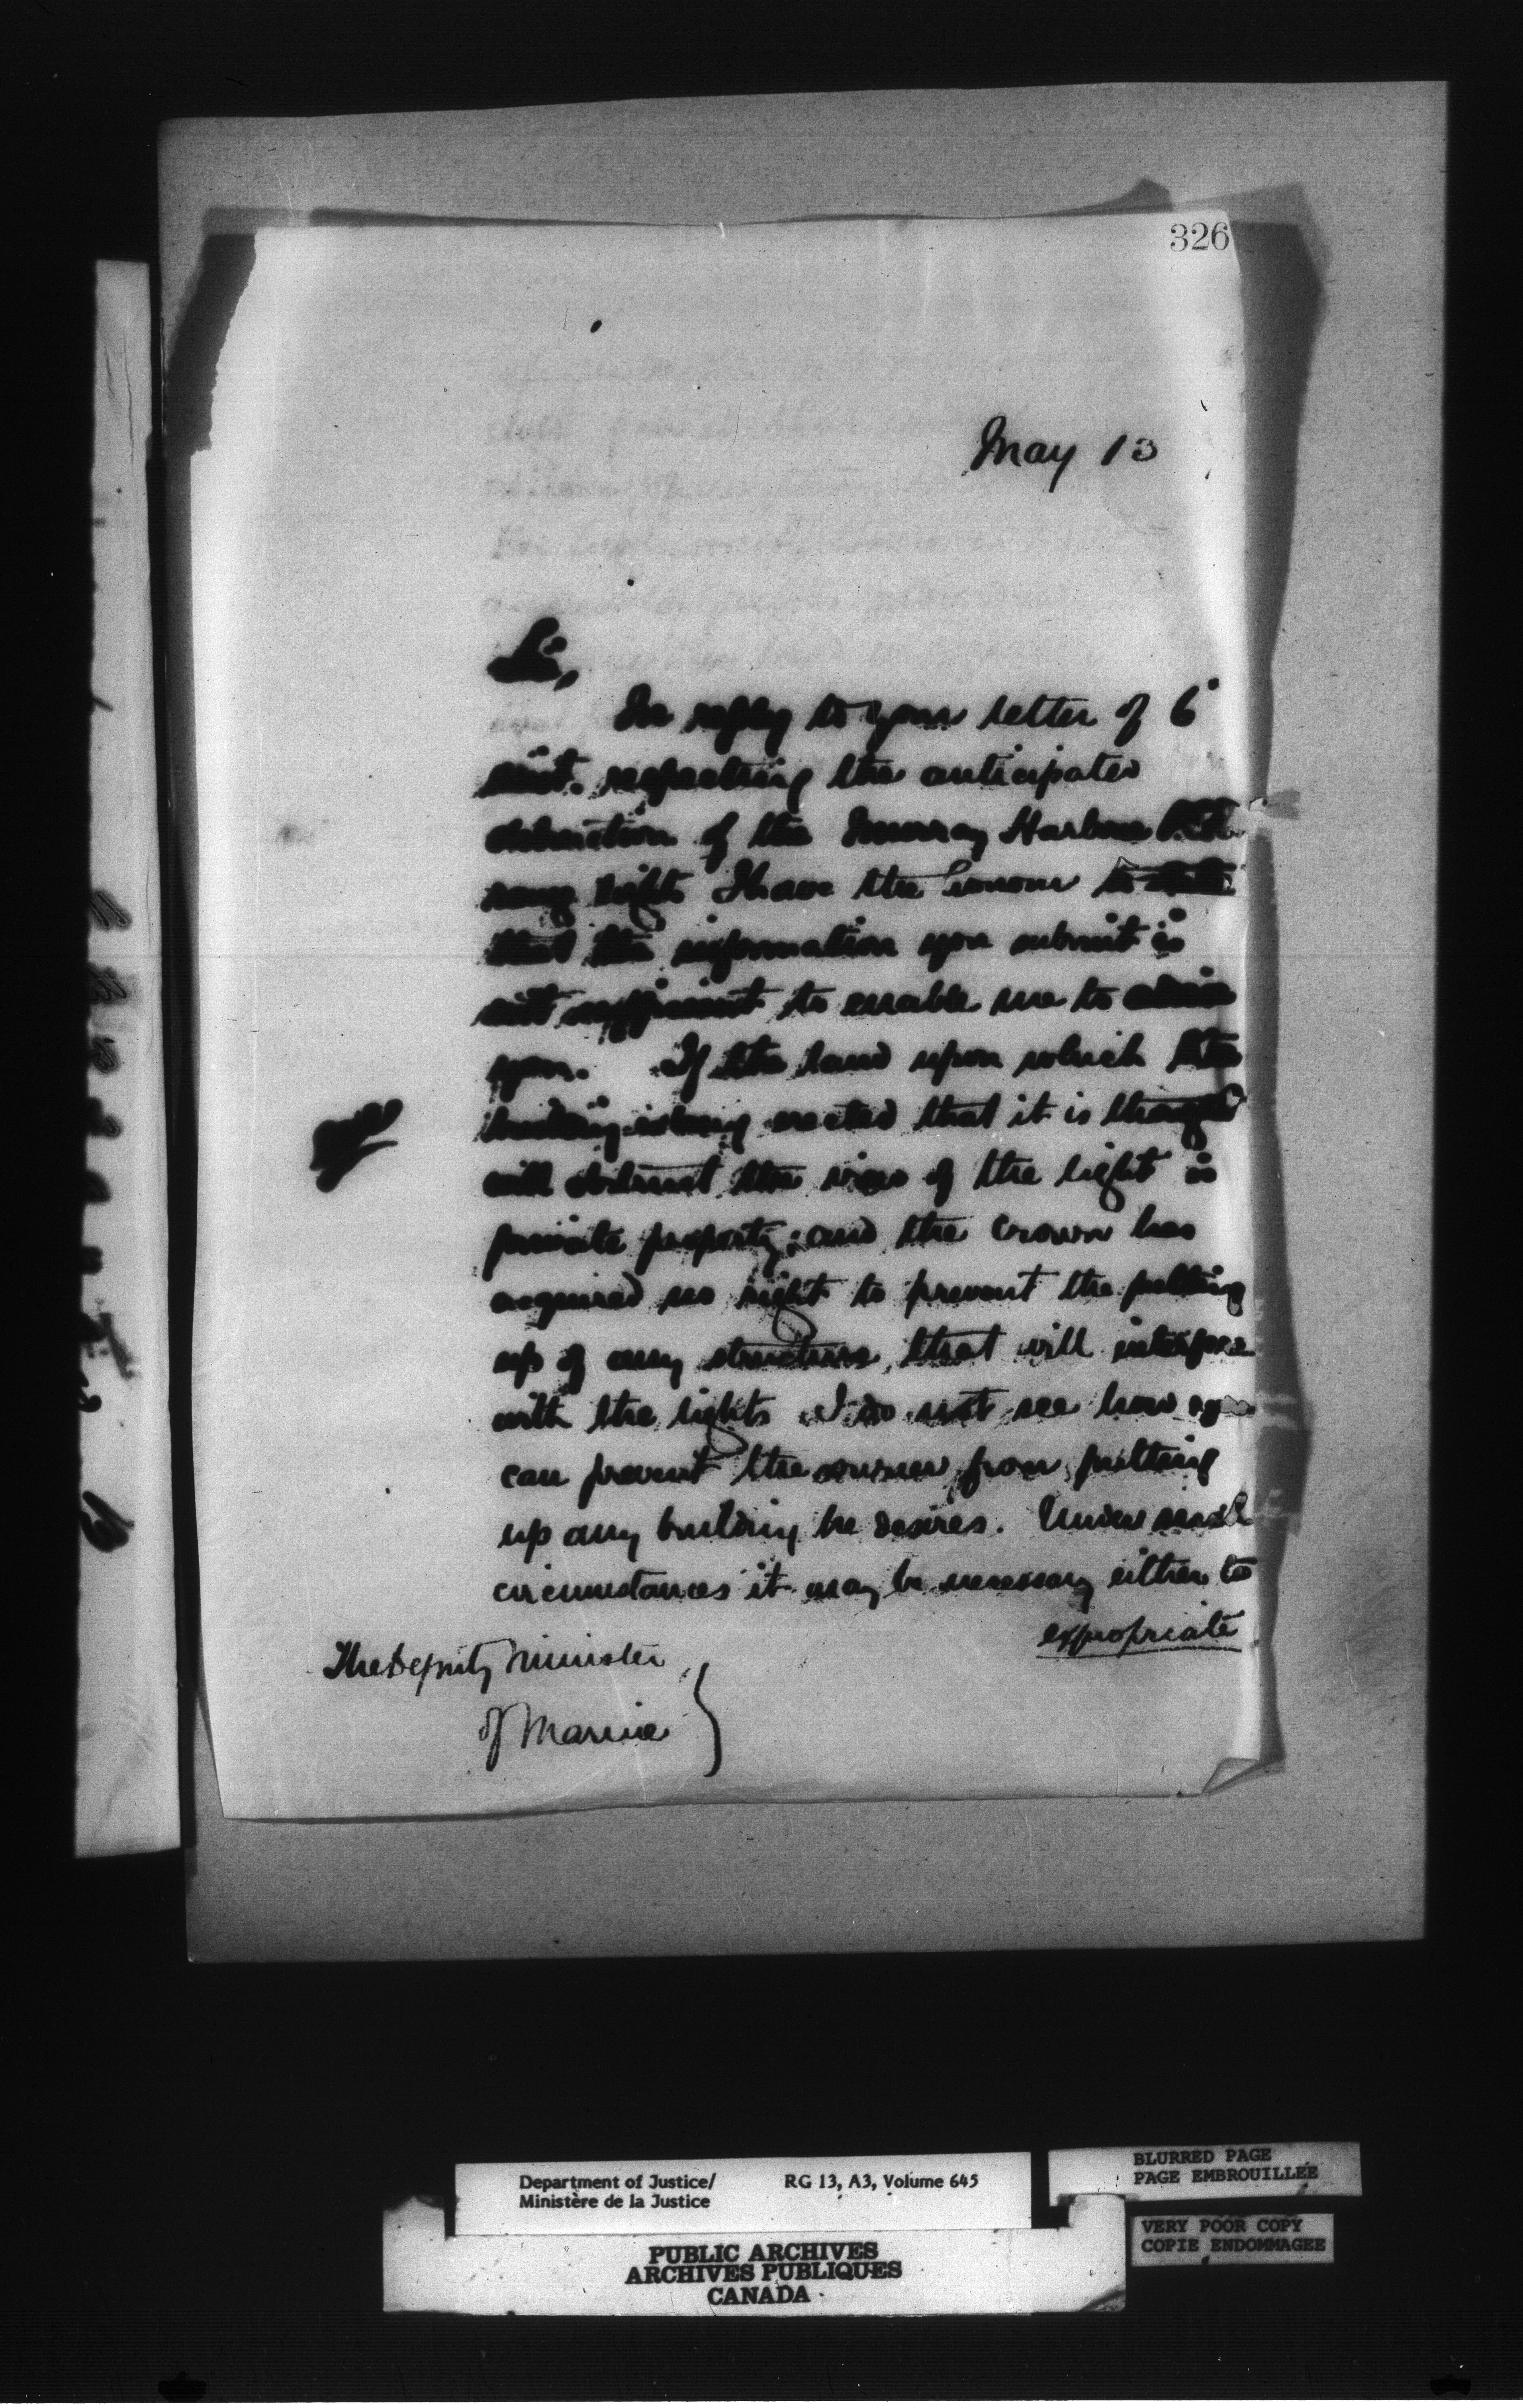 326
May 13
Sir,
In reply to your letter of 6
inst. respecting the anticipated
obstruction of the Murray Harbour
range lights I have the honour to state
that the information you submit is
not sufficient to enable me to advise
you. If the land upon which the
building is being erected that it is thought
will obstruct the view of the light is
private property; and the Crown has
acquired no right to prevent the putting
up of any structure that will interfere
with the lights I do not see how you
can prevent the owner from putting
up any building he desires. Under such
circumstances it may be necessary either to
expropriate
The Deputy Minister
of Marine
Department of Justice/
Ministère de la Justice
RG 13, A3, Volume 645
BLURRED PAGE
PAGE EMBROUILLEE
VERY POOR COPY
COPIE ENDOMMAGEE
PUBLIC ARCHIVES
ARCHIVES PUBLIQUES
CANADA